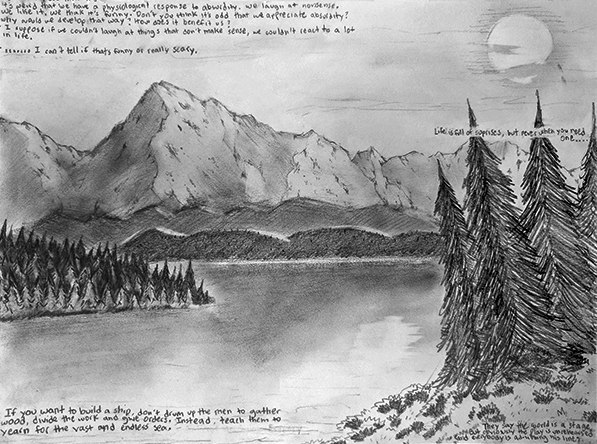 It's weird that we have a physiological response to absurdity. we laugh at nonsense.
We like it. we think it's funny. Don't you think it's odd that we appreciate absurdity?
Why would we develop that way? How does it benefit us?
I suppose if we couldn't laugh at things that don't make sense, we couldn't react to a lot
in life.
....... I can't tell if that's funny or really scary.
Life is full of suprises, but never when you need
one....
If you want to build a ship, don't drum up the men to gather
wood, divide the work and give orders. Instead, teach them to
yearn for the vast and endless sea.
They say the world is a stage
But obviously the play is unrehearsed
and everybody is ad-libbing his lines